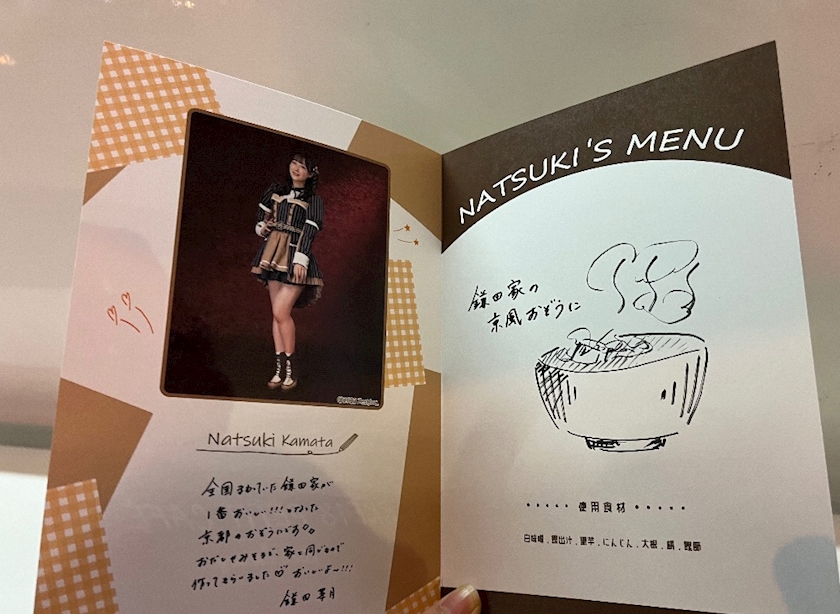 Natsuki Kamata
全国まわっていた鎌田家が
1番おいしい!!!となった
京都のおぞうにです。
おだしやみそまで、家と同じもので
作ってもらいました♡ おいしいよー!!!
鎌田菜月
NATSUKI'S MENU
鎌田家の
京風おぞうに
使用食材
白味噌．鰹出汁．里芋．にんじん．大根．餅．鰹節